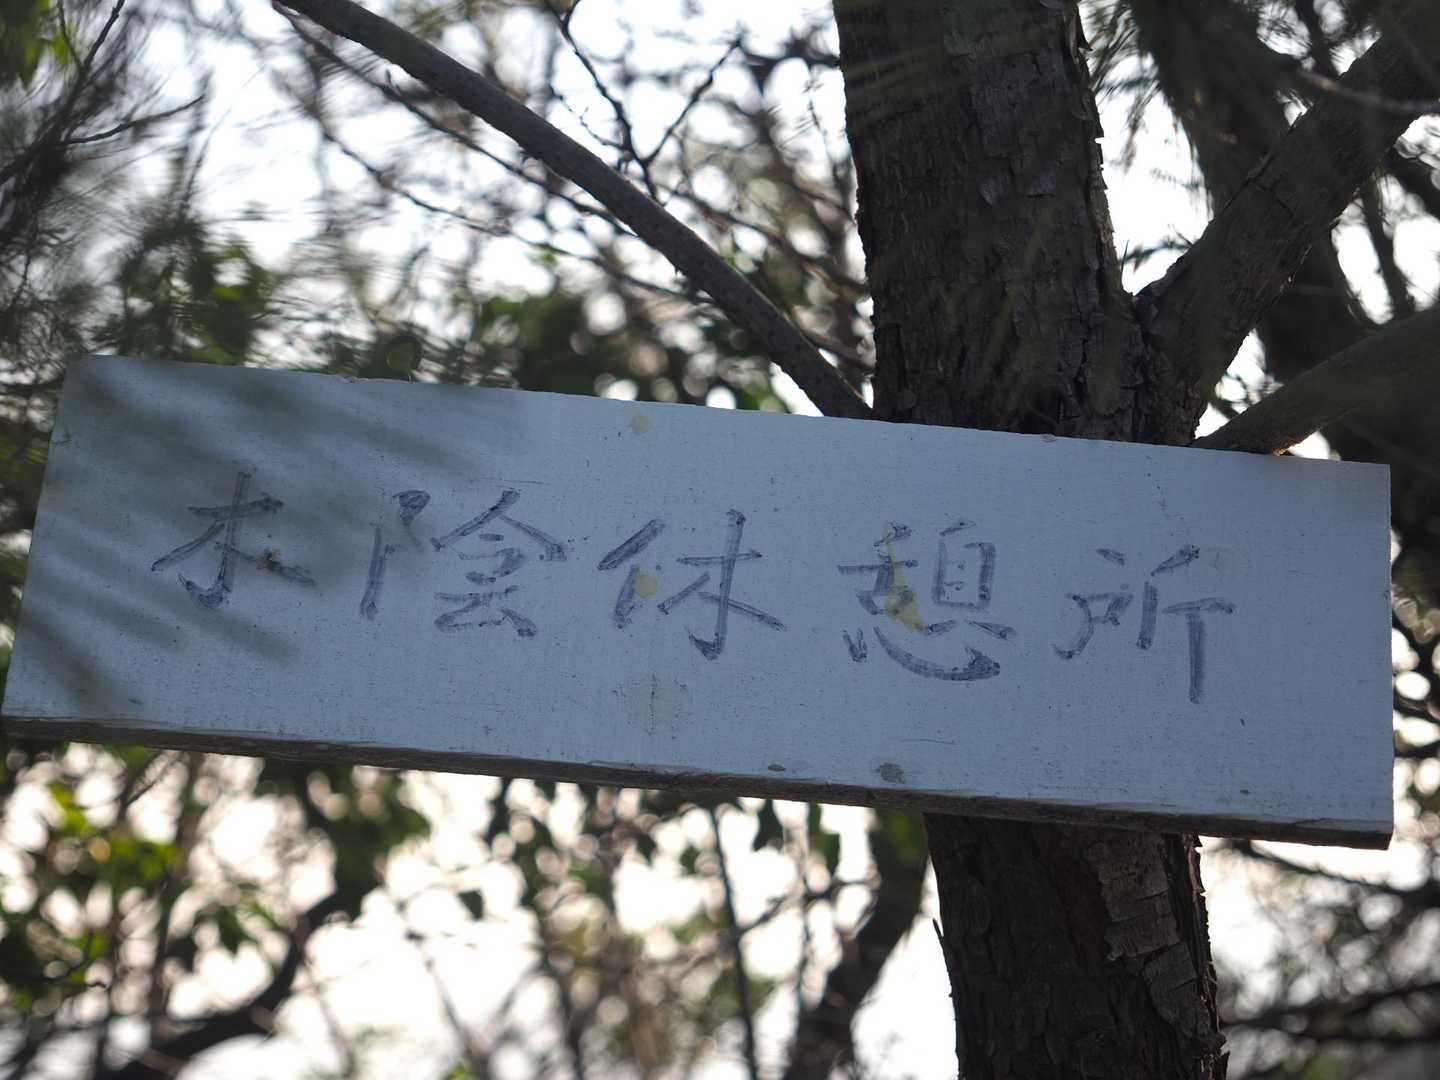 木陰休憩所